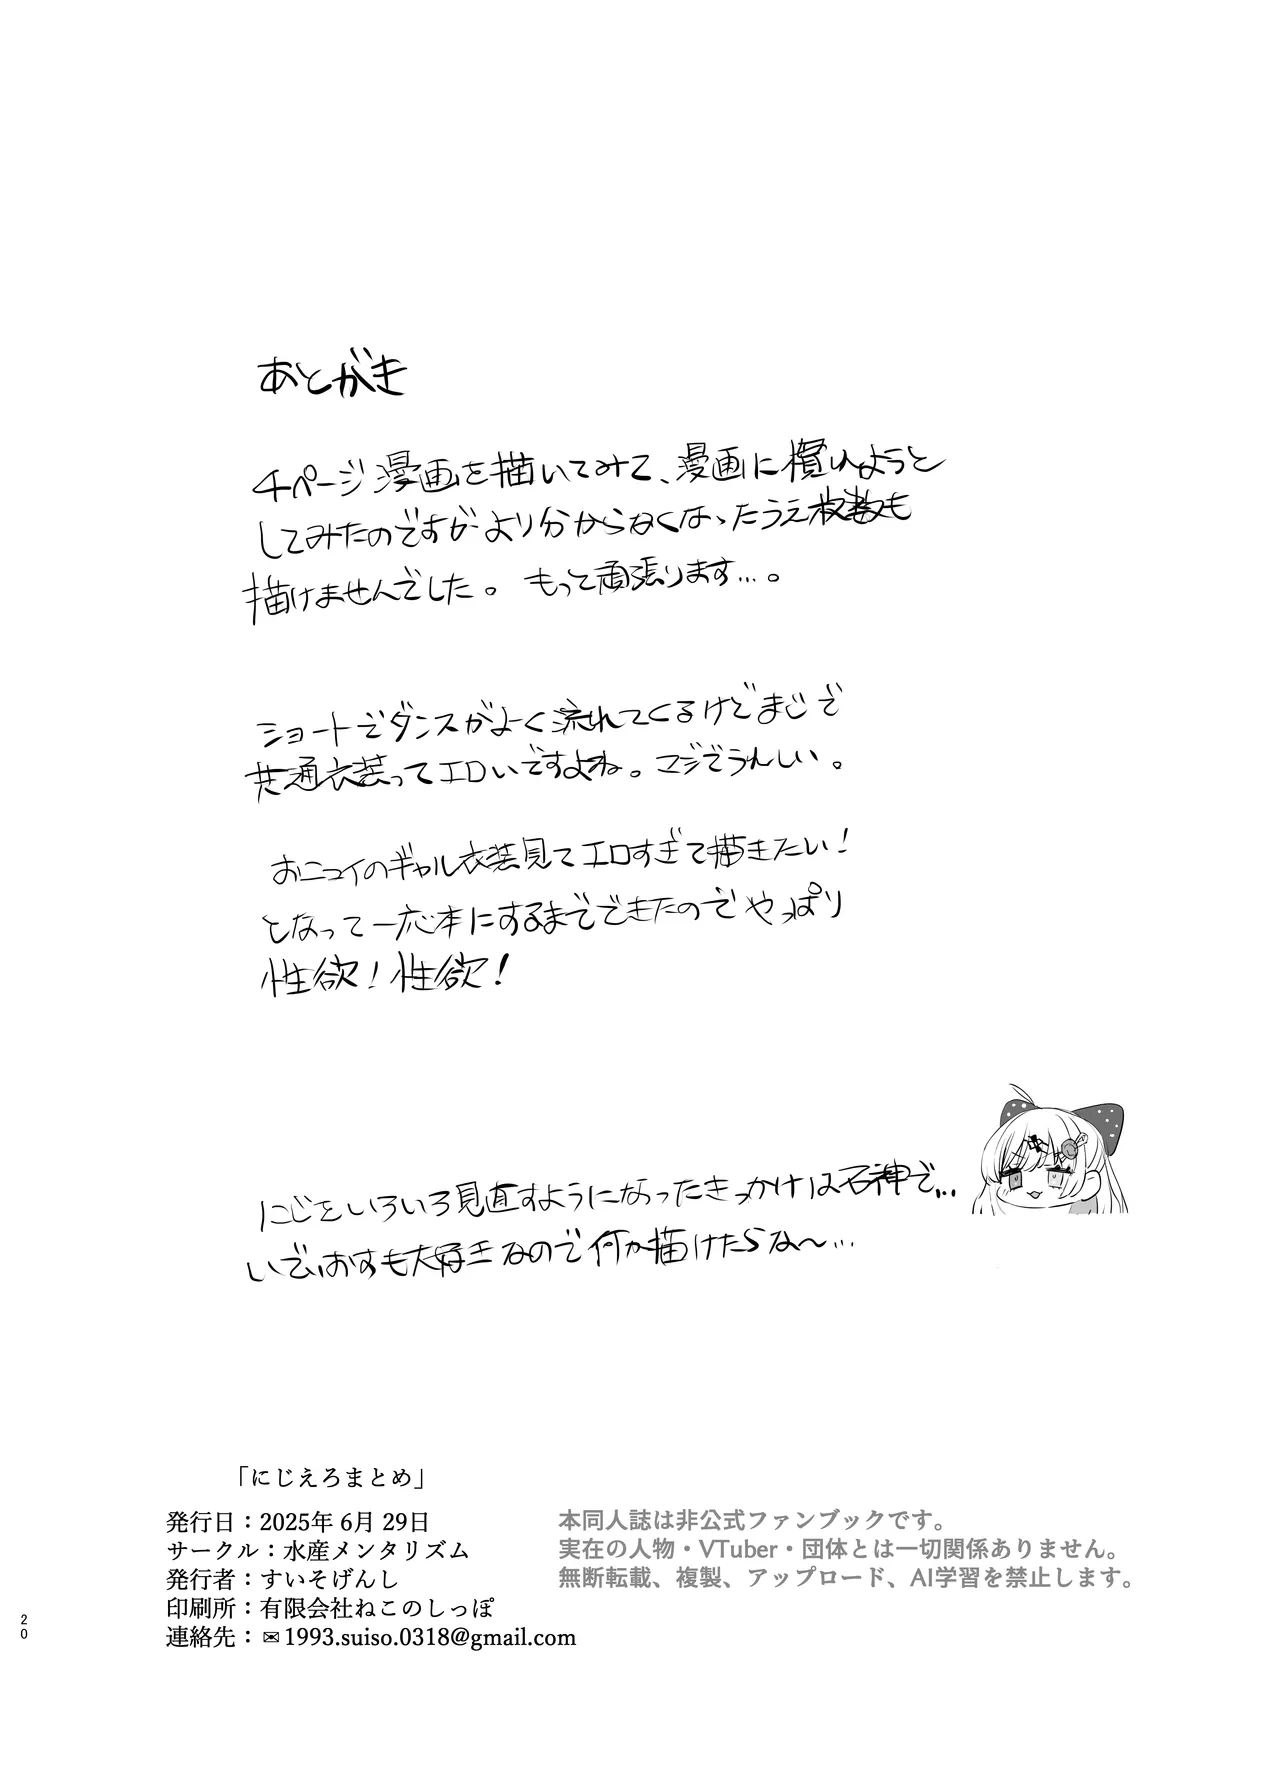 あとがき
4ページ漫画を描いてみて、漫画に慣れようと
してみたのですがより分からなくなったうえ枚数も
描けませんでした。もって頑張ります…。
ショートでダンスがよく流れてくるけどまじで
共通衣装ってエロいですよね。マジでうれしい。
おニュイのギャル衣装見てエロすぎて描きたい!
となって一応本にするまでできたのでやっぱり
性欲!性欲!
にじをいろいろ見直すようになったきっかけは石神で…
いでぃおすも大好きなので何か描けたらな〜…
「にじえろまとめ」
発行日：2025年 6月 29日
サークル：水産メンタリズム
発行者：すいそげんし
印刷所：有限会社ねこのしっぽ
連絡先：✉1993.suiso.0318@gmail.com
本同人誌は非公式ファンブックです。
実在の人物・VTuber・団体とは一切関係ありません。
無断転載、複製、アップロード、AI学習を禁止します。
20